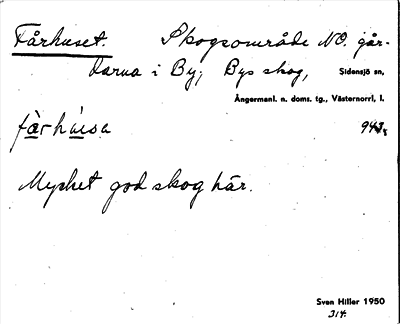 Fårhuset. Skogsområde NO. går-
darna i By; Bys skog, Sidensjö sn,
Ångermanl. n. doms. tg., Västernorrl. l.
fårhúsa
Mycket god skog här.
Sven Hiller 1950
314.